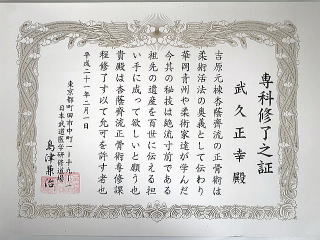 専科修了之証
武久正幸殿
吉原元棟杏蔭齋流の正骨術は
柔術活法の奥義として伝わり
華岡青州や柔術家達が学んだ
今其の秘技は絶滅寸前である
祖先の遺産を百世に伝える担
い手に成って欲しいと願う也
貴殿は杏蔭齋流正骨術専修課
程修了す以て允可を許す者也
平成二十一年二月一日
東京都町田市中町
日本武道医学研修道場
島津兼治